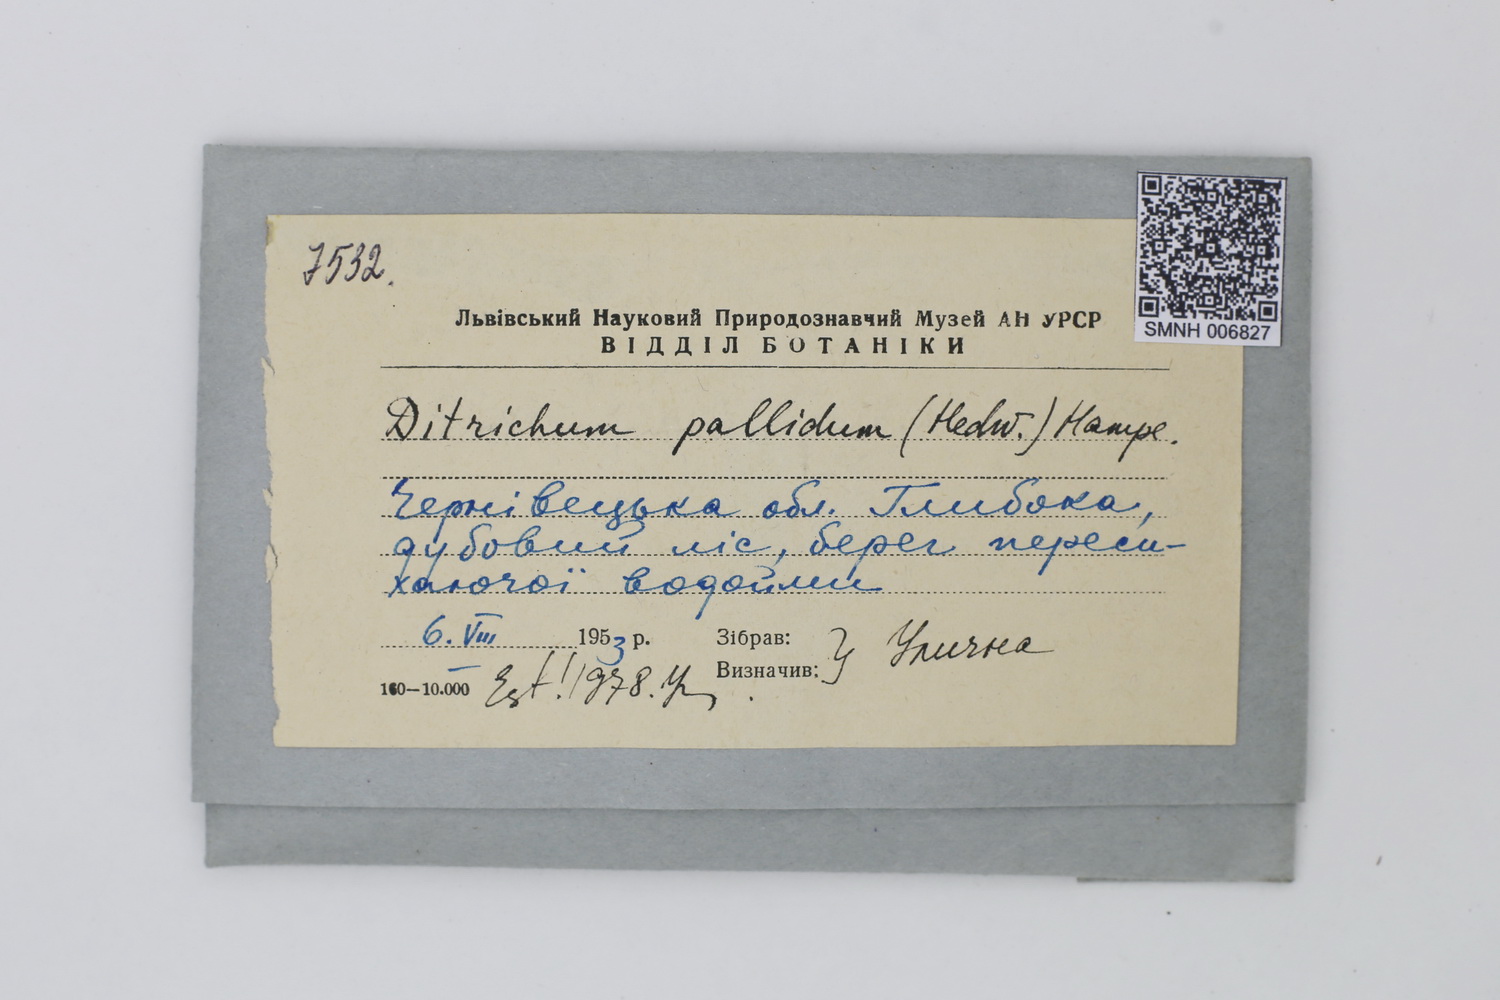 7532.
SMNH 006827
Львівський Науковий Природознавчий Музей АН УРСР
ВІДДІЛ БОТАНІКИ
Ditrichum pallidum (Hedw.) Hampe.
Чернівецька обл. Глибока,
дубовий ліс, берег переси-
хаючої водойми
6. VIII 1953 р.
Зібрав:
Визначив: Улична
160—10.000
Est! 1978.